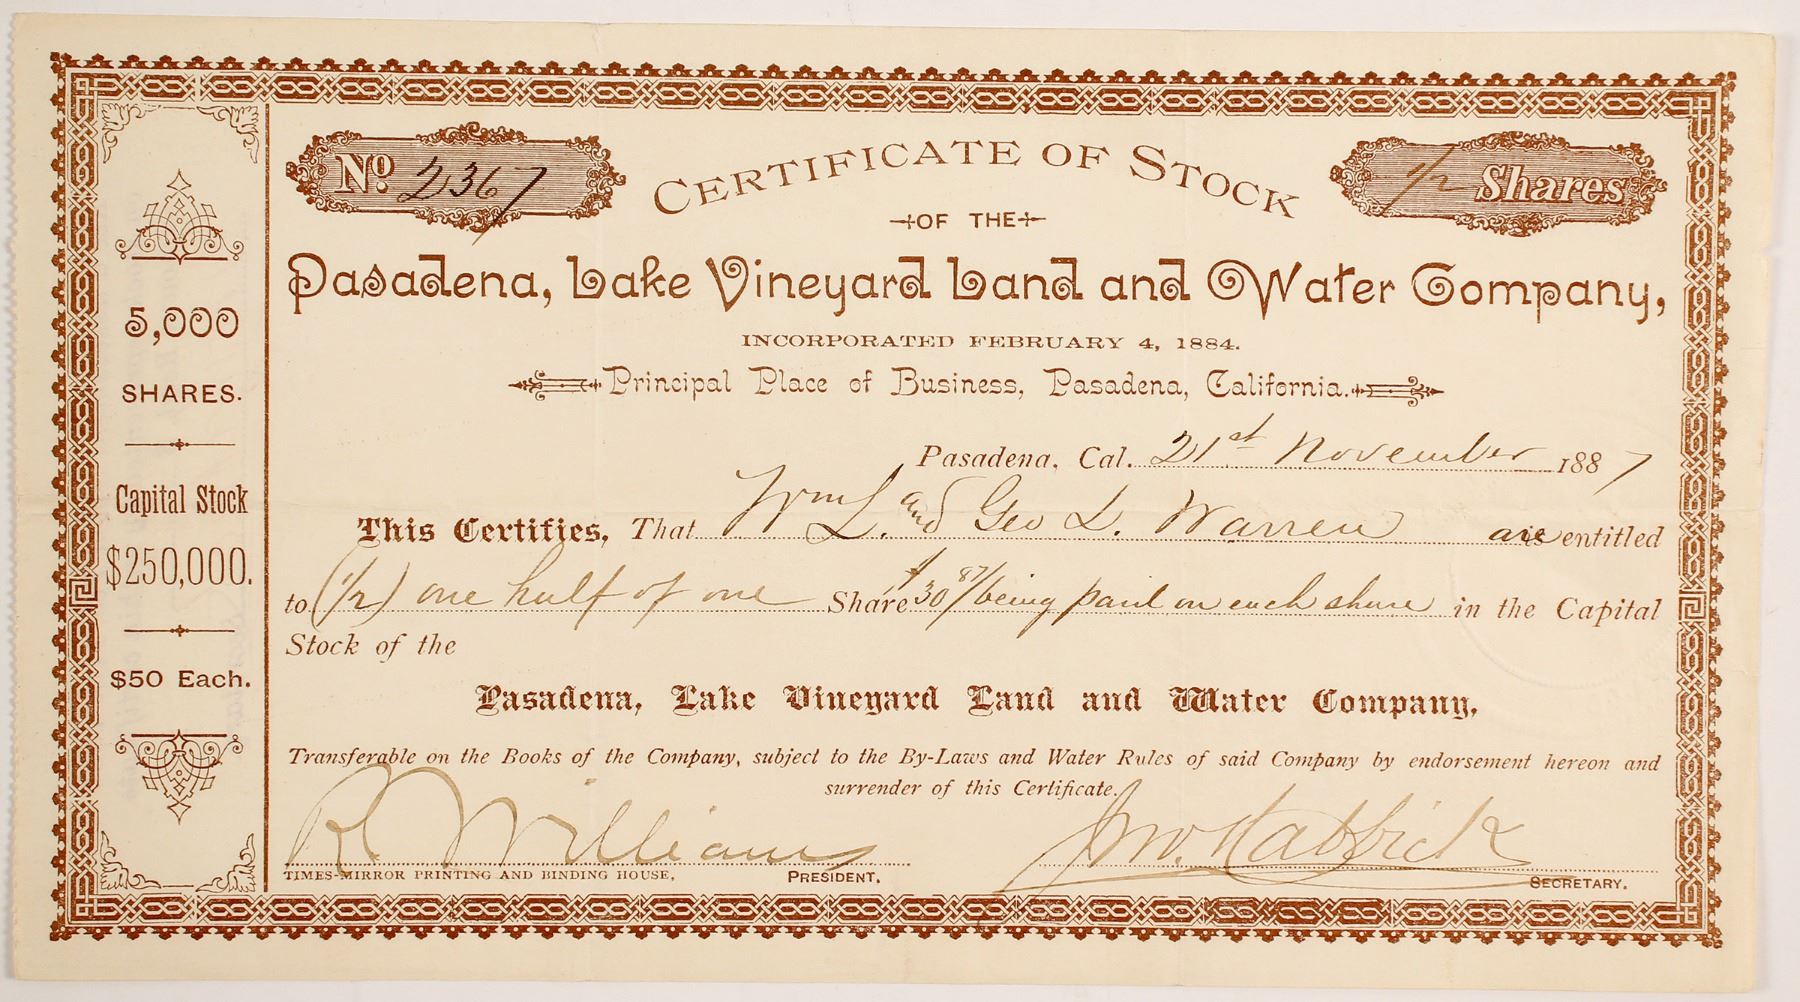 No. 2367
1/2 Shares
CERTIFICATE OF STOCK
OF THE
Pasadena, Lake Vineyard Land and Water Company,
INCORPORATED FEBRUARY 4, 1884.
Principal Place of Business, Pasadena, California.
5,000
SHARES.
Capital Stock
$250,000.
$50 Each.
Pasadena, Cal. 21st November 1887
This Certifies, That Wm L. and Geo L. Warren are entitled
to (1/2) one half of one Share $30 87/ being paid on each share in the Capital
Stock of the
Pasadena, Lake Vineyard Land and Water Company,
Transferable on the Books of the Company, subject to the By-Laws and Water Rules of said Company by endorsement hereon and
surrender of this Certificate.
R Williams
Jno. Habbick
TIMES-MIRROR PRINTING AND BINDING HOUSE,
PRESIDENT.
SECRETARY.